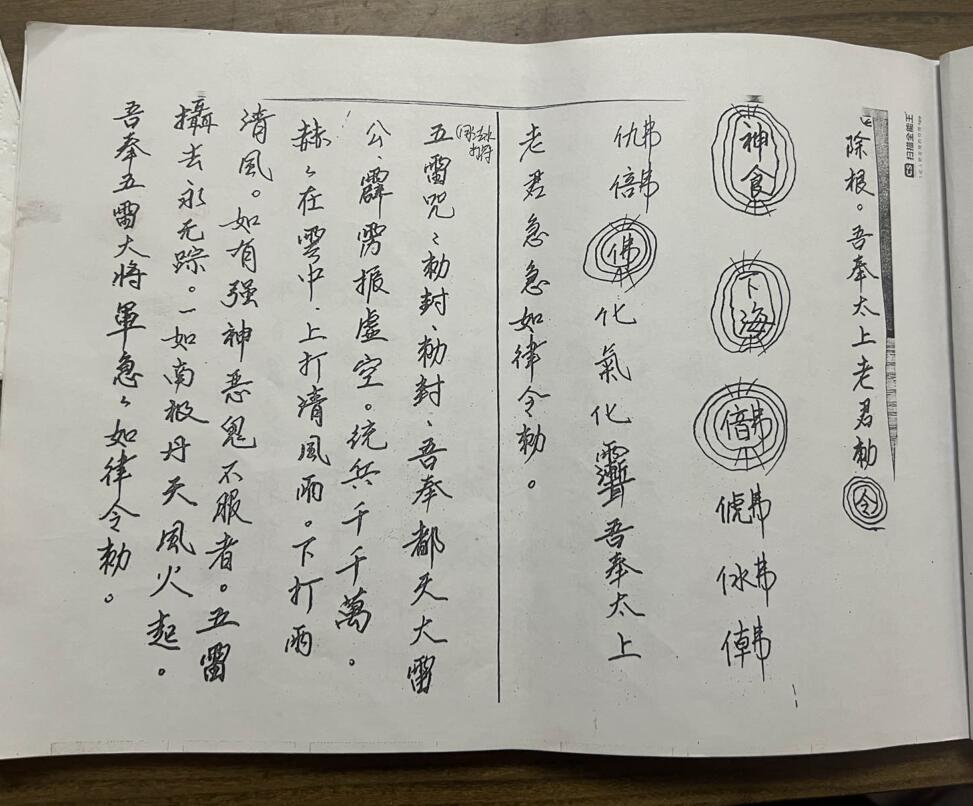 扫描全能王
除根。吾奉太上老君勅令
神食
下海
佛
化氣化吾奉太上
老君急急如律令勅。
五雷咒:勅封、勅封、吾奉都天大雷
公、霹雳振虚空。統兵千千萬。
赫々在雲中.上打清風雨。下打雨
清風。如有强神恶鬼不服者。五雷
攝去永无踪。一如南被丹天風火起。
吾奉五雷大將軍急々如律令勅。